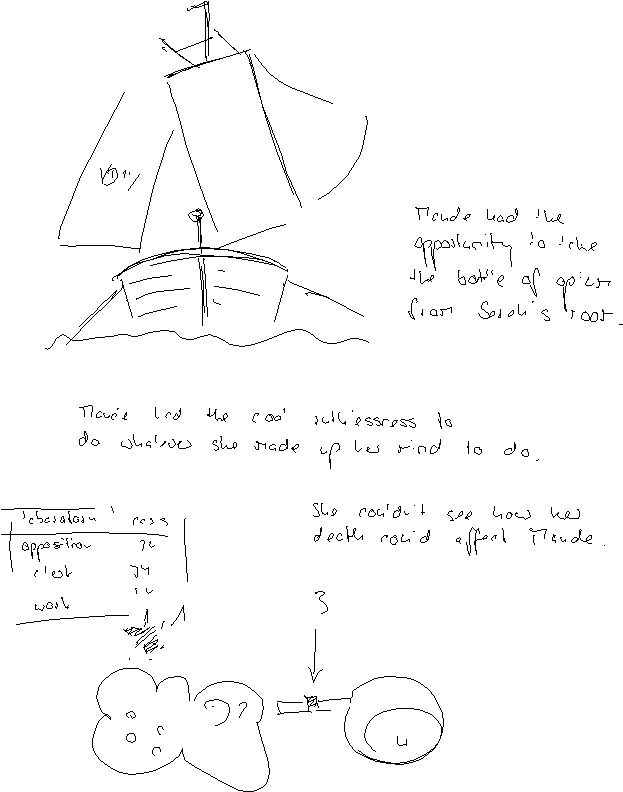 Maude had the
opportunity to take
the bottle of opium
from Sarah's room.
Maude had the cool ruthlessness to
do whatever she made up her mind to do.
She couldn't see how her
death could affect Maude.
opposition
work
3
4